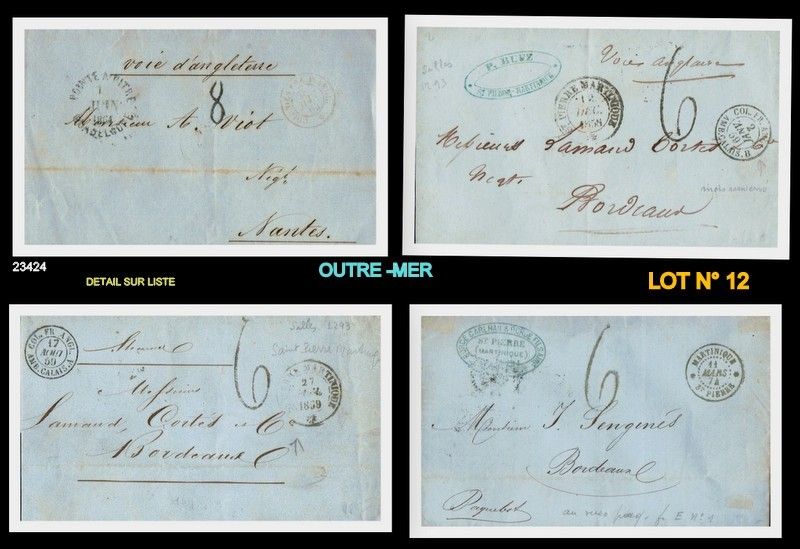 voie d'angleterre
POINTE A PITRE
JUIN
GUADELOUPE
8
Monsieur A. Viot
Negt
Nantes.
P. RUFZ
ST PIERRE-MARTINIQUE
Salles
1293
Voie anglaise
ST PIERRE MARTINIQUE
12
DEC.
1858
6
COL. FR. ANG.
2
JANV
59
AMB. CALAIS. B
Messieurs Lamaud Cortès
Negts
Bordeaux
23424
DETAIL SUR LISTE
OUTRE -MER
LOT N° 12
COL. FR. ANGL.
17
AOUT
59
AMB. CALAIS. A
Salles 1293
Saint Pierre Martinique
6
MARTINIQUE
27
1859
Messieurs
Lamaud Cortès et Co
Bordeaux
ST PIERRE
(MARTINIQUE)
6
MARTINIQUE
11
MARS
74
ST PIERRE
Monsieur J. Sengenés
Bordeaux
Paquebot
au verso paq. fr E N° 1